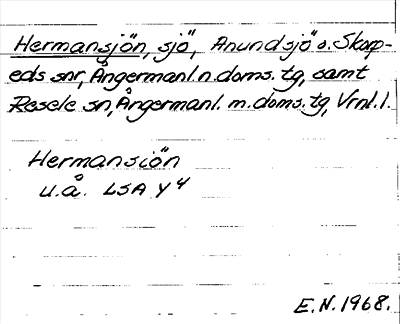 Hermansjön, sjö, Anundsjö o. Skorp-
eds snr, Ångermanl. n. doms. tg, samt
Resele sn, Ångermanl. m. doms. tg, Vrnl. l.
Hermansiön
u.å. LSA Y 4
E.N. 1968.